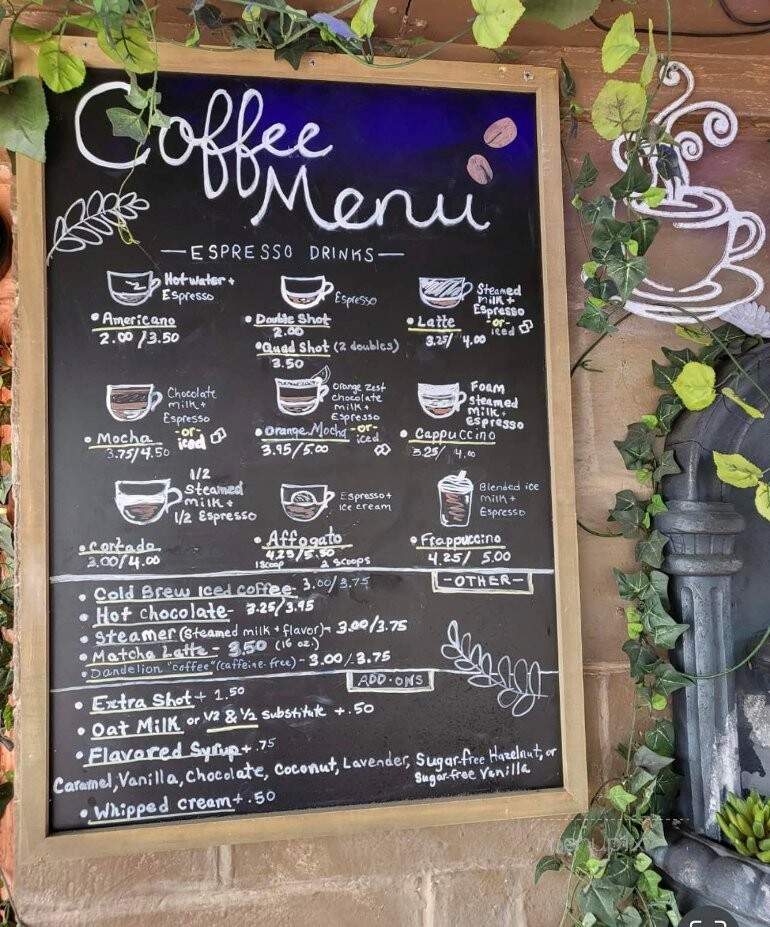 Coffee
Menu
—ESPRESSO DRINKS—
Hot water +
Espresso
• Americano
2.00 / 3.50
Espresso
• Double Shot
2.00
• Quad Shot (2 doubles)
3.50
Steamed
milk +
Espresso
-or-
iced
• Latte
3.25/ 4.00
Chocolate
milk +
Espresso
-or-
iced
• Mocha
3.75/4.50
Orange zest
chocolate
milk +
Espresso
-or-
iced
• Orange Mocha
3.95/5.00
Foam
steamed
milk +
Espresso
• Cappuccino
3.25/ 4.00
1/2
Steamed
milk +
1/2 Espresso
• Cortado
3.00/4.00
Espresso +
Ice cream
• Affogato
4.25/5.50
1 scoop 2 scoops
Blended ice
milk +
Espresso
• Frappuccino
4.25/ 5.00
-OTHER-
• Cold Brew Iced coffee- 3.00/3.75
• Hot Chocolate- 3.25/3.95
• Steamer (steamed milk + flavor)- 3.00/3.75
• Matcha Latte - 3.50 (16 oz.)
• Dandelion "coffee" (caffeine-free) - 3.00/3.75
ADD-ONS
• Extra Shot + 1.50
• Oat Milk or 1/2 & 1/2 substitute +.50
• Flavored Syrup +.75
Caramel, Vanilla, Chocolate, Coconut, Lavender, Sugar-free Hazelnut, or
Sugar-free Vanilla
• Whipped Cream +.50